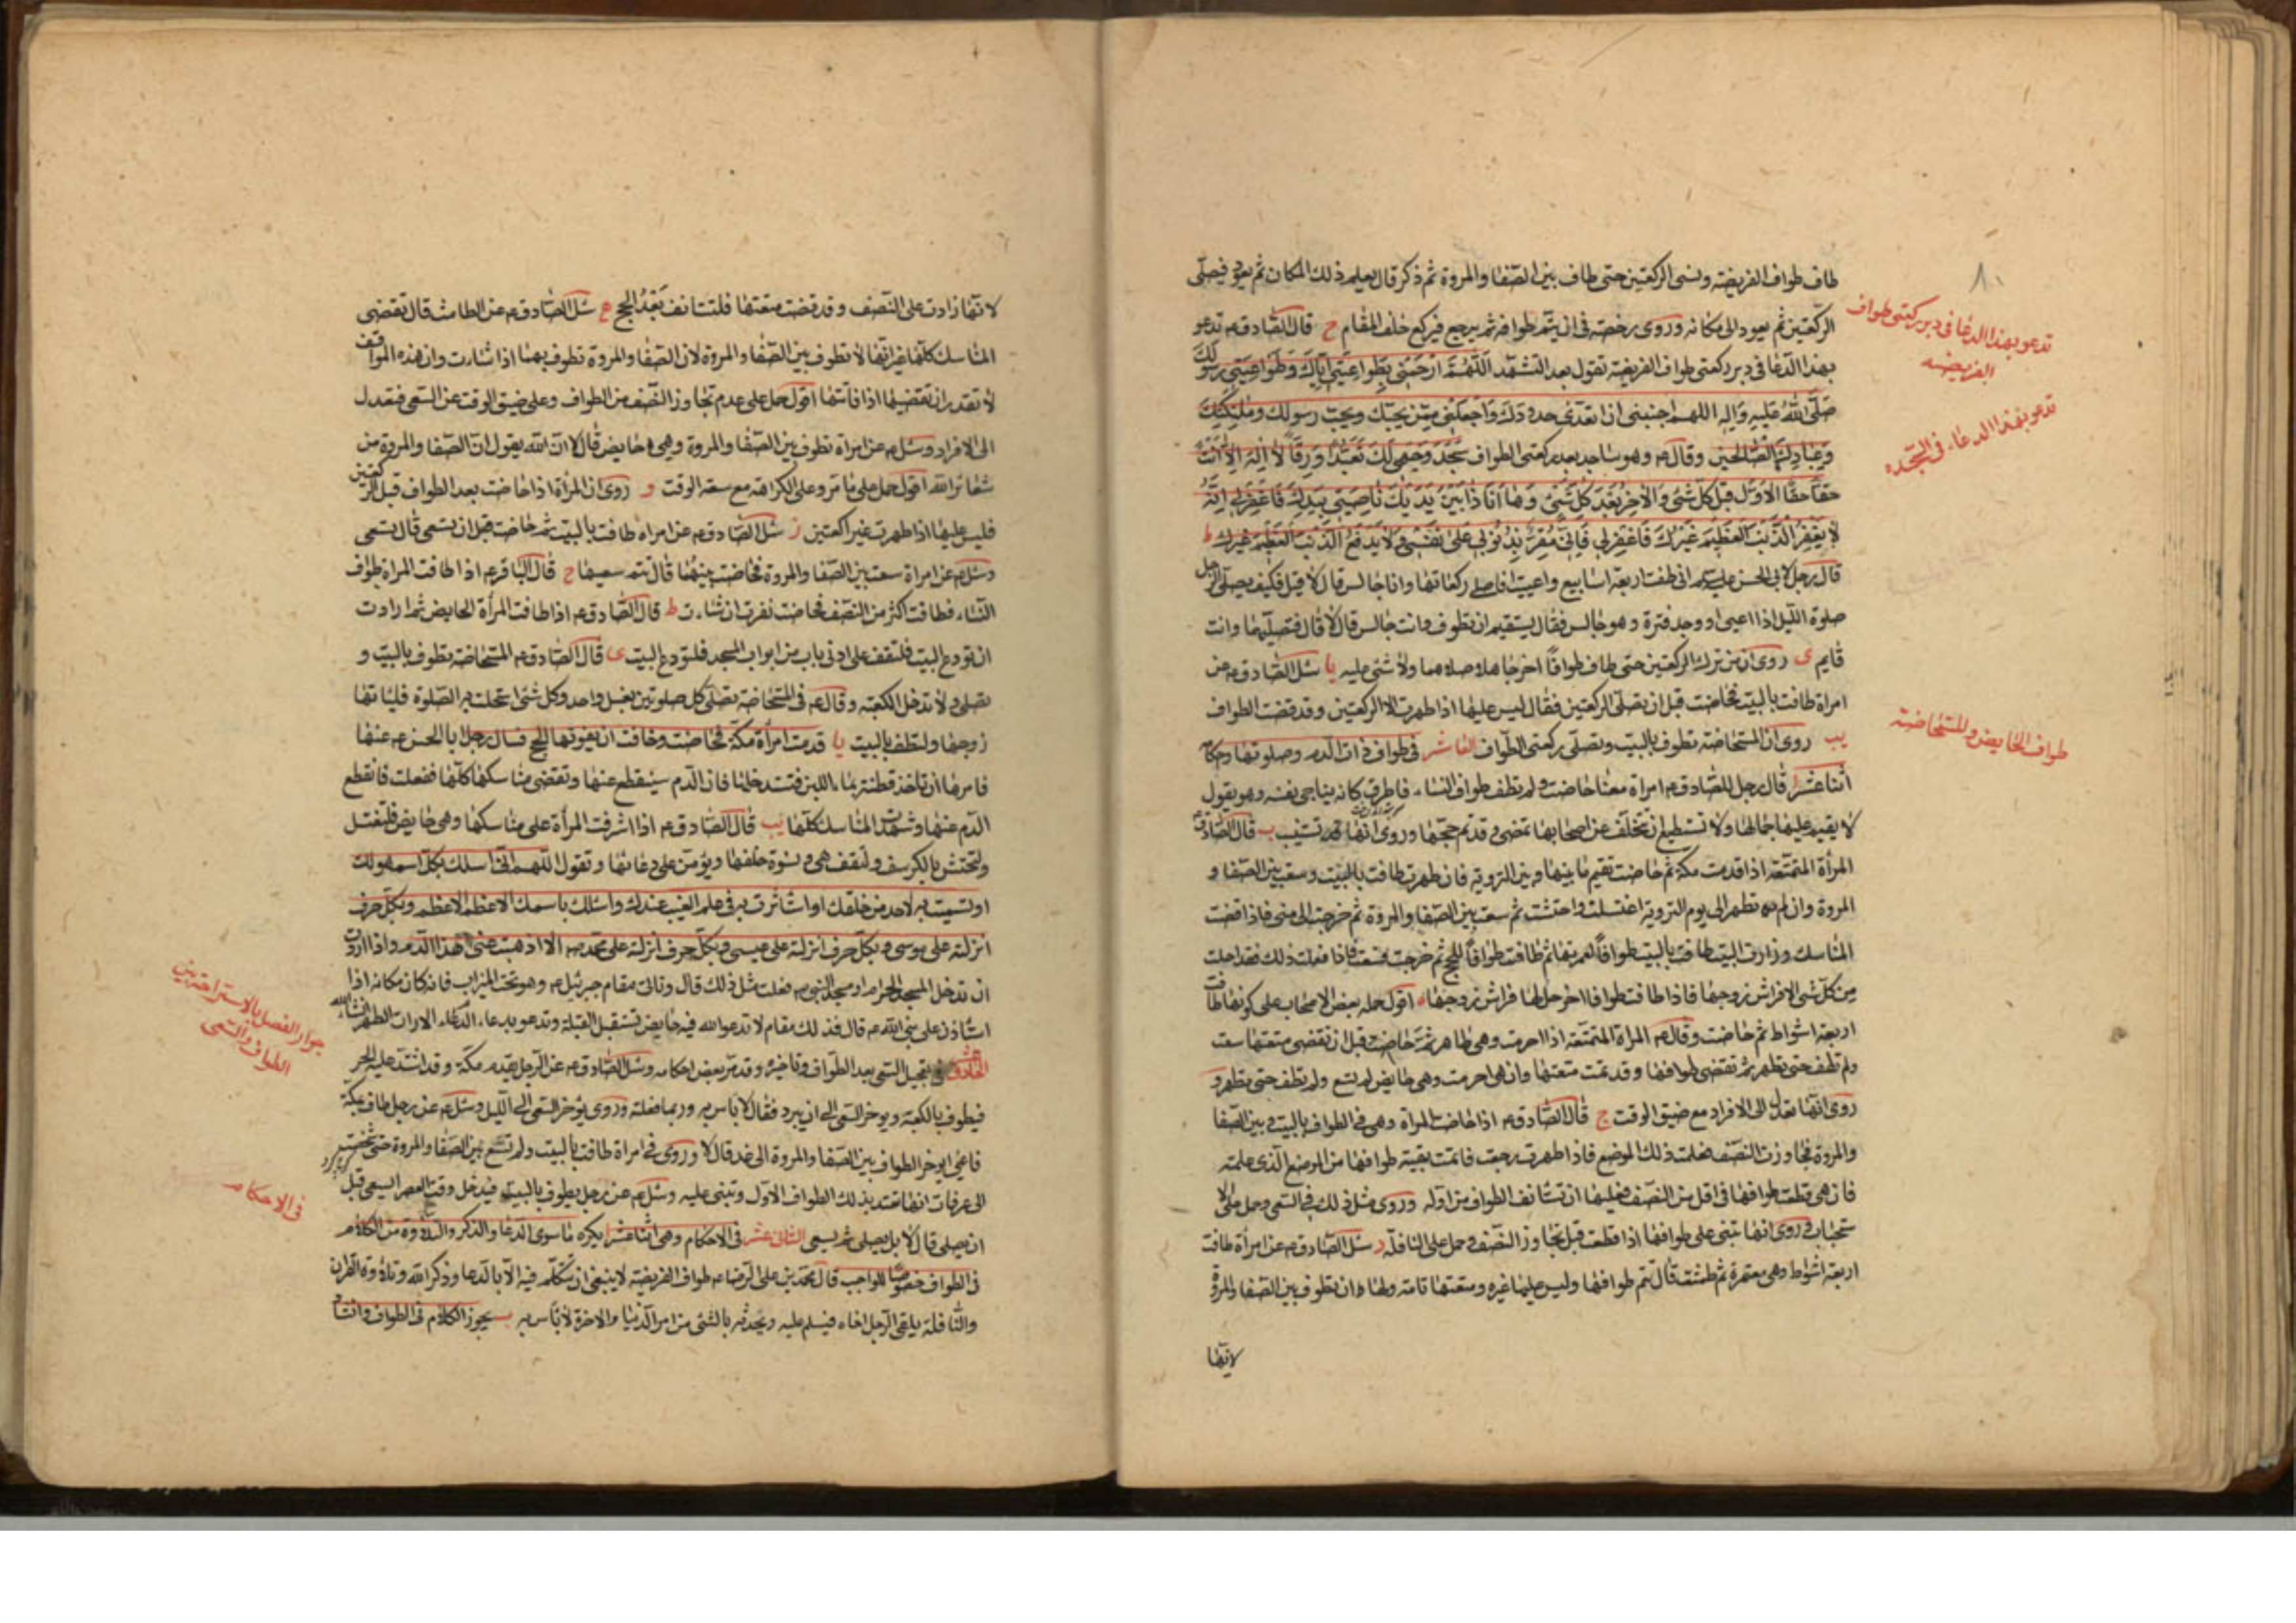 ٨٠
طاف طواف الفريضة ونسى الركعتين حتى طاف بين الصفا والمروة ثم ذكر قال يعلم ذلك المكان ثم يعود فيصلى
الركعتين ثم يعود الى مكانه وروى رخصة فى ان يتم طوافه ثم يرجع فيركع خلف المقام ح قال الصادق ع تدعو
بهذا الدعا فى دبر ركعتى طواف الفريضة تقول بعد التشهد اللهم ارحمنى بطواعيتى اياك وطواعيتى رسولك
صلى الله عليه واله اللهم اجنبنى ان اتعدى حدودك واجعلنى ممن يحبك ويحب رسولك وملئكتك
وعبادك الصالحين وقال ع وهو ساجد بعد ركعتى الطواف سجد وجهى لك تعبدا ورقا لا اله الا انت
حقا حقا الاول قبل كل شئ والاخر بعد كل شئ وها انا ذا بين يديك ناصيتى بيدك فاغفر لى انه
لا يغفر الذنب العظيم غيرك فاغفر لى فانى مقر بذنوبى على نفسى ولا يدفع الذنب العظيم غيرك ط
قال رجل لابى الحسن عليه السلام انى طفت اربعة اسابيع واعييت افاصلى ركعاتها وانا جالس قال لا قيل فكيف يصلى الرجل
صلوة الليل اذا اعيى او وجد فترة وهو جالس فقال يستقيم ان تطوف وانت جالس قال لا قال فتصليهما وانت
قايم ى روى ان من ترك الركعتين حتى طاف طوافا اخر جاهلا صلاهما ولا شئ عليه يا سئل الصادق ع عن
امراة طافت بالبيت فحاضت قبل ان تصلى الركعتين فقال ليس عليها اذا طهرت الا الركعتين وقد قضت الطواف
يب روى ان المستحاضة تطوف بالبيت وتصلى ركعتى الطواف العاشر فى طواف ذات الدم وصلوتها وحكامه
اثنا عشر ا قال رجل للصادق ع امراة معنا حاضت ولم تطف طواف النساء فاطرق كانه يناجى نفسه وهو يقول
لا يقيم عليها جمالها ولا تستطيع ان تتخلف عن اصحابها تمضى وقد تم حجها وروى انها تستنيب ب قال الصادق ع
المراة المتمتعة اذا قدمت مكة ثم حاضت تقيم ما بينها وبين التروية فان طهرت طافت بالبيت وسعت بين الصفا و
المروة وان لم تطهر الى يوم التروية اغتسلت واحتشت ثم سعت بين الصفا والمروة ثم خرجت الى منى فاذا قضت
المناسك وزارت البيت طافت بالبيت طوافا لعمرتها ثم طافت طوافا للحج ثم خرجت فسعت فاذا فعلت ذلك فقد احلت
من كل شئ الا فراش زوجها فاذا طافت طوافا اخر حل لها فراش زوجها اقول حمله بعض الاصحاب على كونها طافت
اربعة اشواط ثم حاضت وقال ع المراة المتمتعة اذا احرمت وهى طاهر ثم حاضت قبل ان تقضى متعتها سعت
ولم تطف حتى تطهر ثم تقضى طوافها وقد تمت متعتها وان هى احرمت وهى حايض لم تسع ولم تطف حتى تطهر و
روى انها تعدل الى الافراد مع ضيق الوقت ج قال الصادق ع اذا حاضت المراة وهى فى الطواف بالبيت وبين الصفا
والمروة فجاوزت النصف فعلمت ذلك الموضع فاذا طهرت رجعت فاتمت بقية طوافها من الموضع الذى علمته
فان هى قطعت طوافها فى اقل من النصف فعليها ان تستانف الطواف من اوله وروى مثل ذلك فى السعى وحمل على الا
ستحباب وروى انها تبنى على طوافها اذا قطعت قبل تجاوز النصف وحمل على النافلة د سئل الصادق ع عن امراة طافت
اربعة اشواط وهى معتمرة ثم طمثت قال تتم طوافها وليس عليها غيره ومتعتها تامة ولها ان تطوف بين الصفا والمروة
لانها
تدعو بهذا الدعا فى دبر ركعتى طواف
الفريضه
تدعو بهذا الدعاء فى السجده
طواف الحايض والمستحاضة
لانها زادت على النصف وقد قضت متعتها فلتستانف بعد الحج ه سئل الصادق ع عن الطامث قال تقضى
المناسك كلها غير انها لا تطوف بين الصفا والمروة لان الصفا والمروة تطوف بهما اذا شاءت وان هذه المواقف
لا تقدر ان تقضيها اذا فاتتها اقول حمل على عدم تجاوز النصف من الطواف وعلى ضيق الوقت عن السعى فتعدل
الى الافراد وسئل ع عن امراة تطوف بين الصفا والمروة وهى حايض قال لا ان الله يقول ان الصفا والمروة من
شعائر الله اقول حمل على ما مر وعلى الكراهة مع سعة الوقت و روى ان المراة اذا حاضت بعد الطواف قبل الركعتين
فليس عليها اذا طهرت غير الركعتين ز سئل الصادق ع عن امراة طافت بالبيت ثم حاضت قبل ان تسعى قال تسعى
وسئل ع عن امراة سعت بين الصفا والمروة فحاضت بينهما قال تتم سعيها ح قال الباقر ع اذا طافت المراة طواف
النساء فطافت اكثر من النصف فحاضت نفرت ان شاءت ط قال الصادق ع اذا طافت المراة الحايض ثم ارادت
ان تودع البيت فلتقف على ادنى باب من ابواب المسجد فلتودع البيت ى قال الصادق ع المستحاضة تطوف بالبيت و
تصلى ولا تدخل الكعبة وقال ع فى المستحاضة تصلى كل صلوتين بغسل واحد وكل شئ استحلت به الصلوة فلياتها
زوجها ولتطف بالبيت يا قدمت امراة مكة فحاضت وخافت ان يفوتها الحج فسال رجل ابا الحسن ع عنها
فامرها ان تاخذ قطنة بماء اللبن فتستدخلها فان الدم سينقطع عنها وتقضى مناسكها كلها ففعلت فانقطع
الدم عنها وشهدت المناسك كلها يب قال الصادق ع اذا اشرفت المراة على مناسكها وهى حايض فلتغتسل
ولتحتش بالكرسف ولتقف هى ونسوة خلفها ويؤمن على دعائها وتقول اللهم انى اسئلك بكل اسم هو لك
او تسميت به لاحد من خلقك او استاثرت به فى علم الغيب عندك واسئلك باسمك الاعظم الاعظم وبكل حرف
انزلته على موسى وبكل حرف انزلته على عيسى وبكل حرف انزلته على محمد ص الا اذهبت عنى هذا الدم واذا ارادت
ان تدخل المسجد الحرام او مسجد النبى ص فعلت مثل ذلك قال وتاتى مقام جبرئيل ع وهو تحت الميزاب فانه كان مكانه اذا
استاذن على نبى الله ص قال فذلك مقام لا تدعو الله فيه حايض تستقبل القبلة وتدعو بدعاء الدم الا رات الطهر انشاء الله
الحادى عشر فى تعجيل السعى بعد الطواف وتاخيره وقد مر بعض احكامه وسئل الصادق ع عن الرجل يقدم مكة وقد اشتد عليه الحر
فيطوف بالكعبة ويوخر السعى الى ان يبرد فقال لا باس به وربما فعلته وروى يؤخر السعى الى الليل وسئل ع عن رجل طاف بمكة
فاعيى ايوخر الطواف بين الصفا والمروة الى غد قال لا وروى فى امراة طافت بالبيت ولم تسع بين الصفا والمروة حتى شخصت
الى عرفات انها تعتد بذلك الطواف الاول وتبنى عليه وسئل ع عن رجل يطوف بالبيت فيدخل وقت العصر ايسعى قبل
ان يصلى قال لا بل يصلى ثم يسعى الثانى عشر فى الاحكام وهى اثنا عشر ا يكره ما سوى الدعا والذكر والتلاوة من الكلام
فى الطواف خصوصا الواجب قال محمد بن على الرضا ع طواف الفريضة لا ينبغى ان يتكلم فيه الا بالدعا وذكر الله وتلاوة القران
والنافلة يلقى الرجل اخاه فيسلم عليه ويحدثه بالشئ من امر الدنيا والاخرة لا باس به ب يجوز الكلام فى الطواف وانشا
جواز الفصل بالاستراحة بين
الطواف والسعى
فى الاحكام